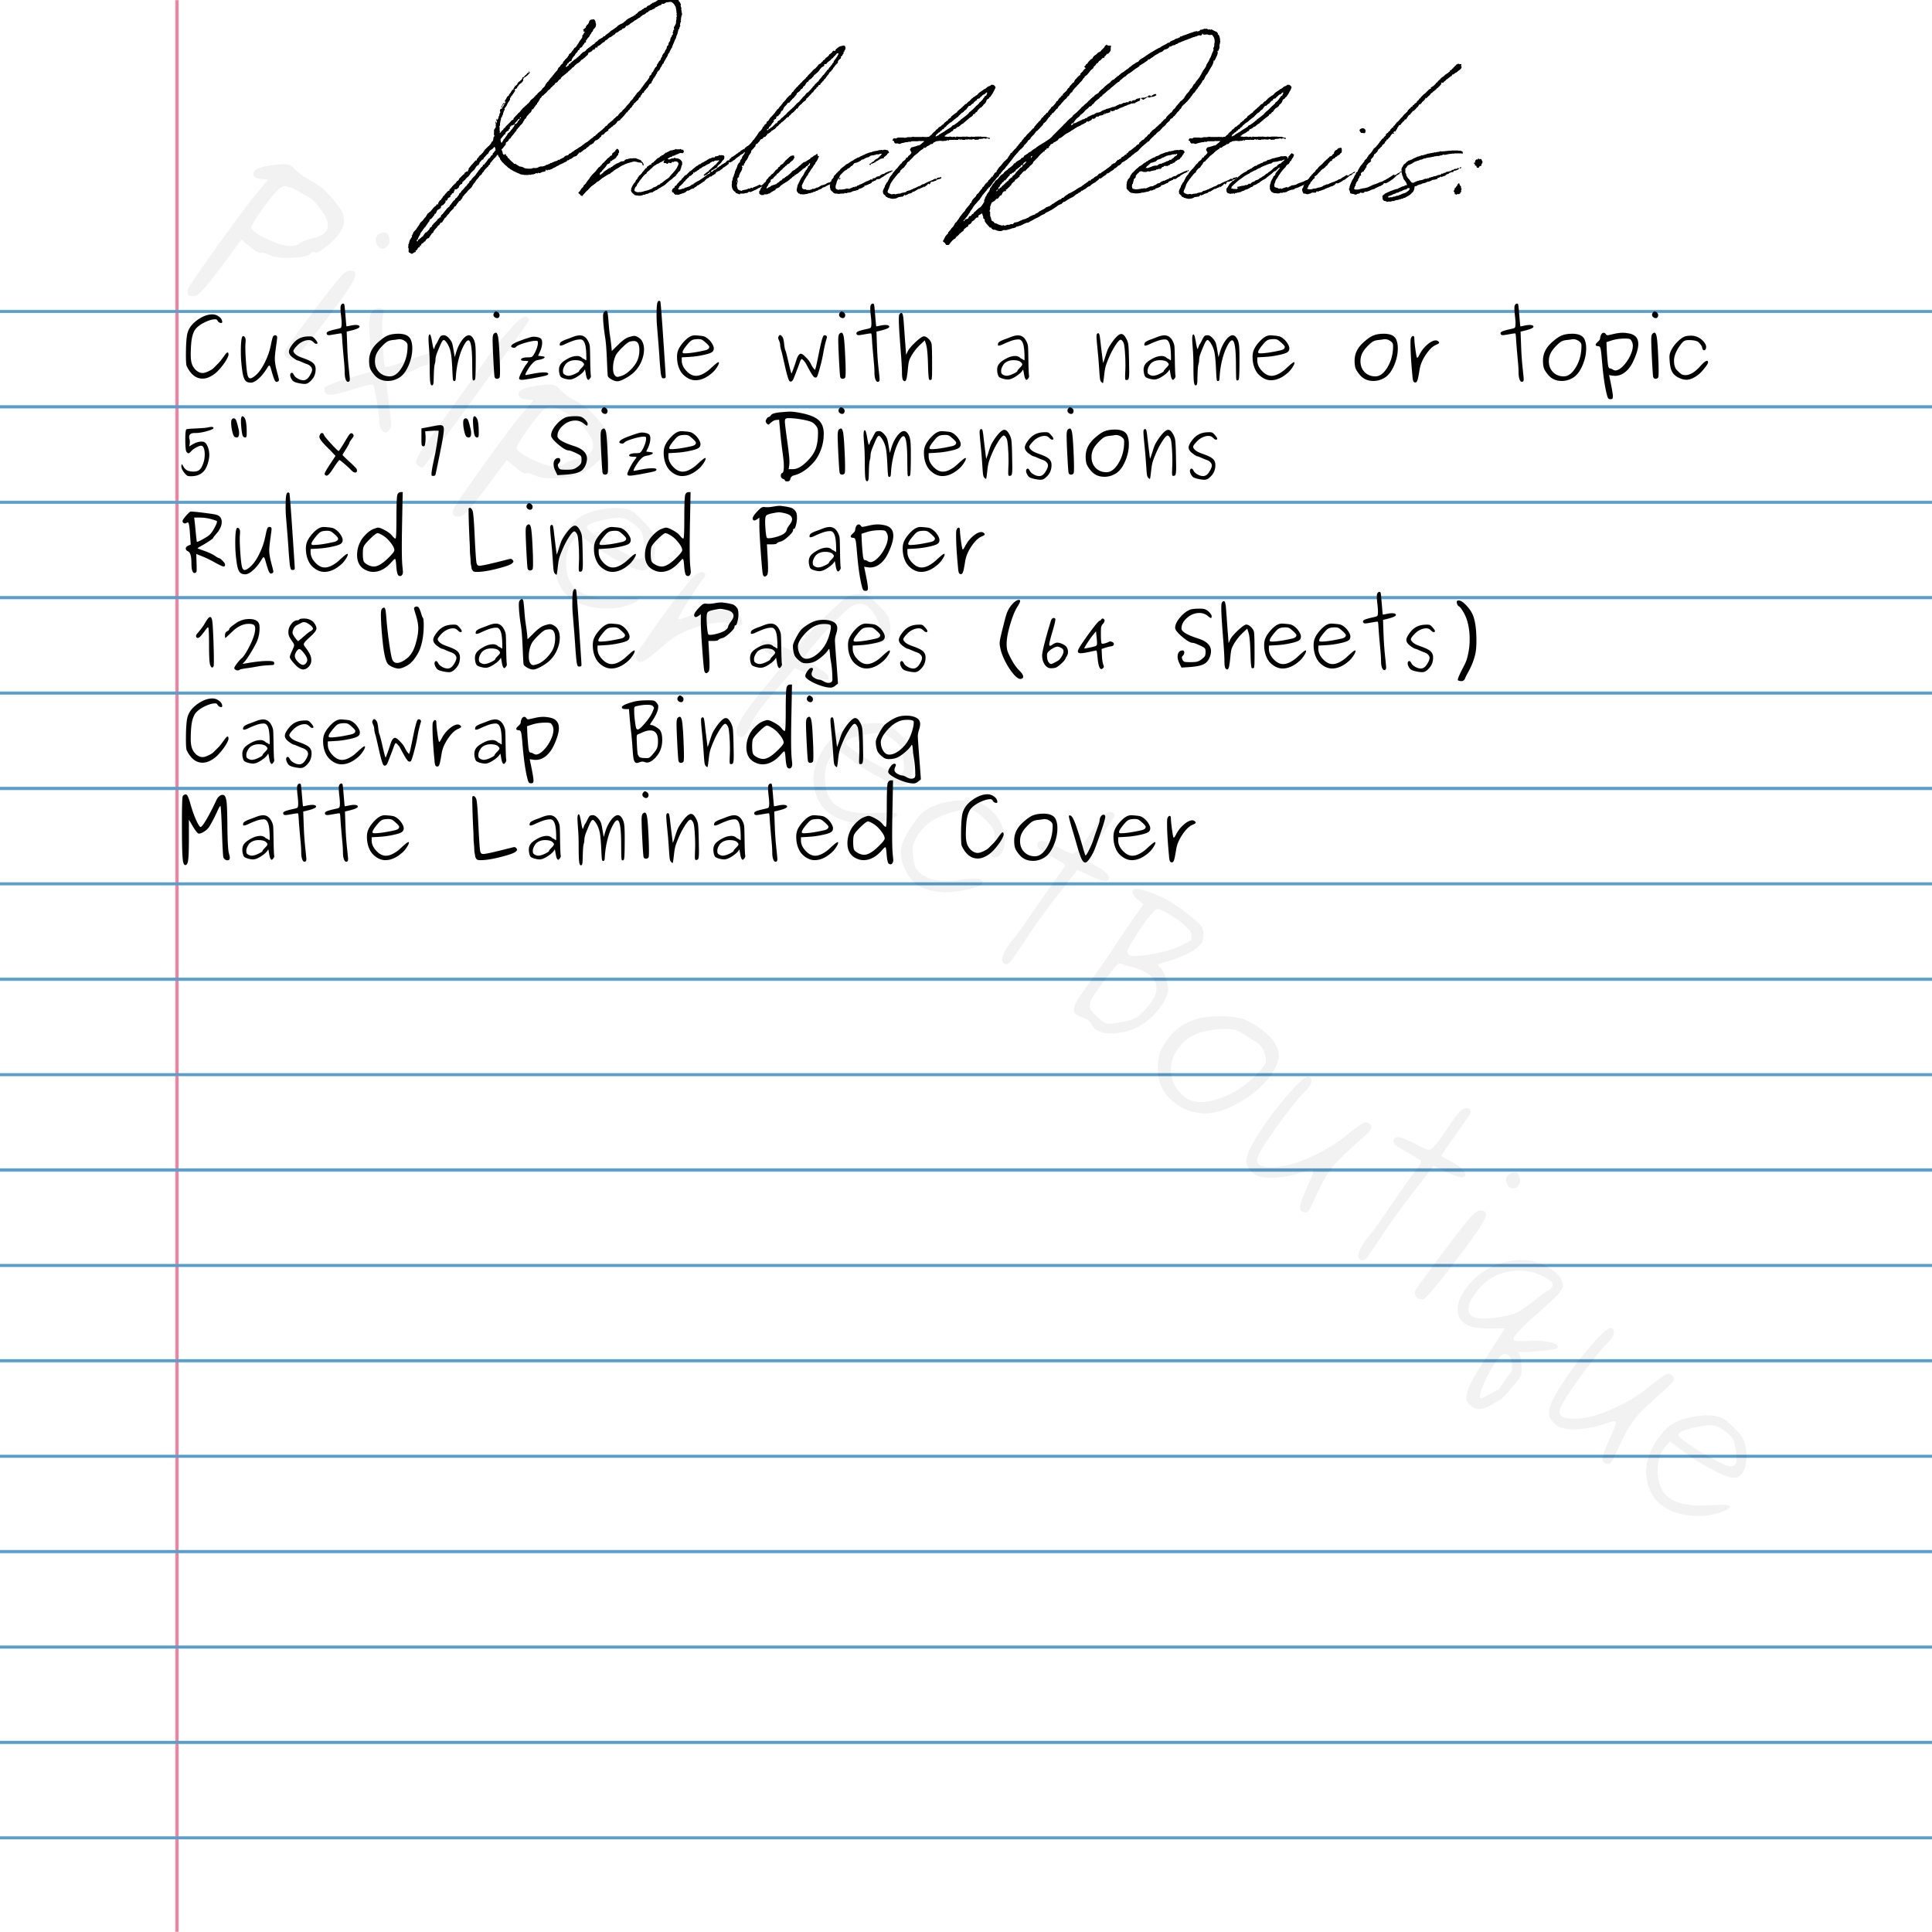 Product Details:
Customizable with a name or topic
5" x 7" Size Dimensions
Ruled Lined Paper
128 Usable Pages (64 Sheets)
Casewrap Binding
Matte Laminated Cover
PixiPerfectBoutique